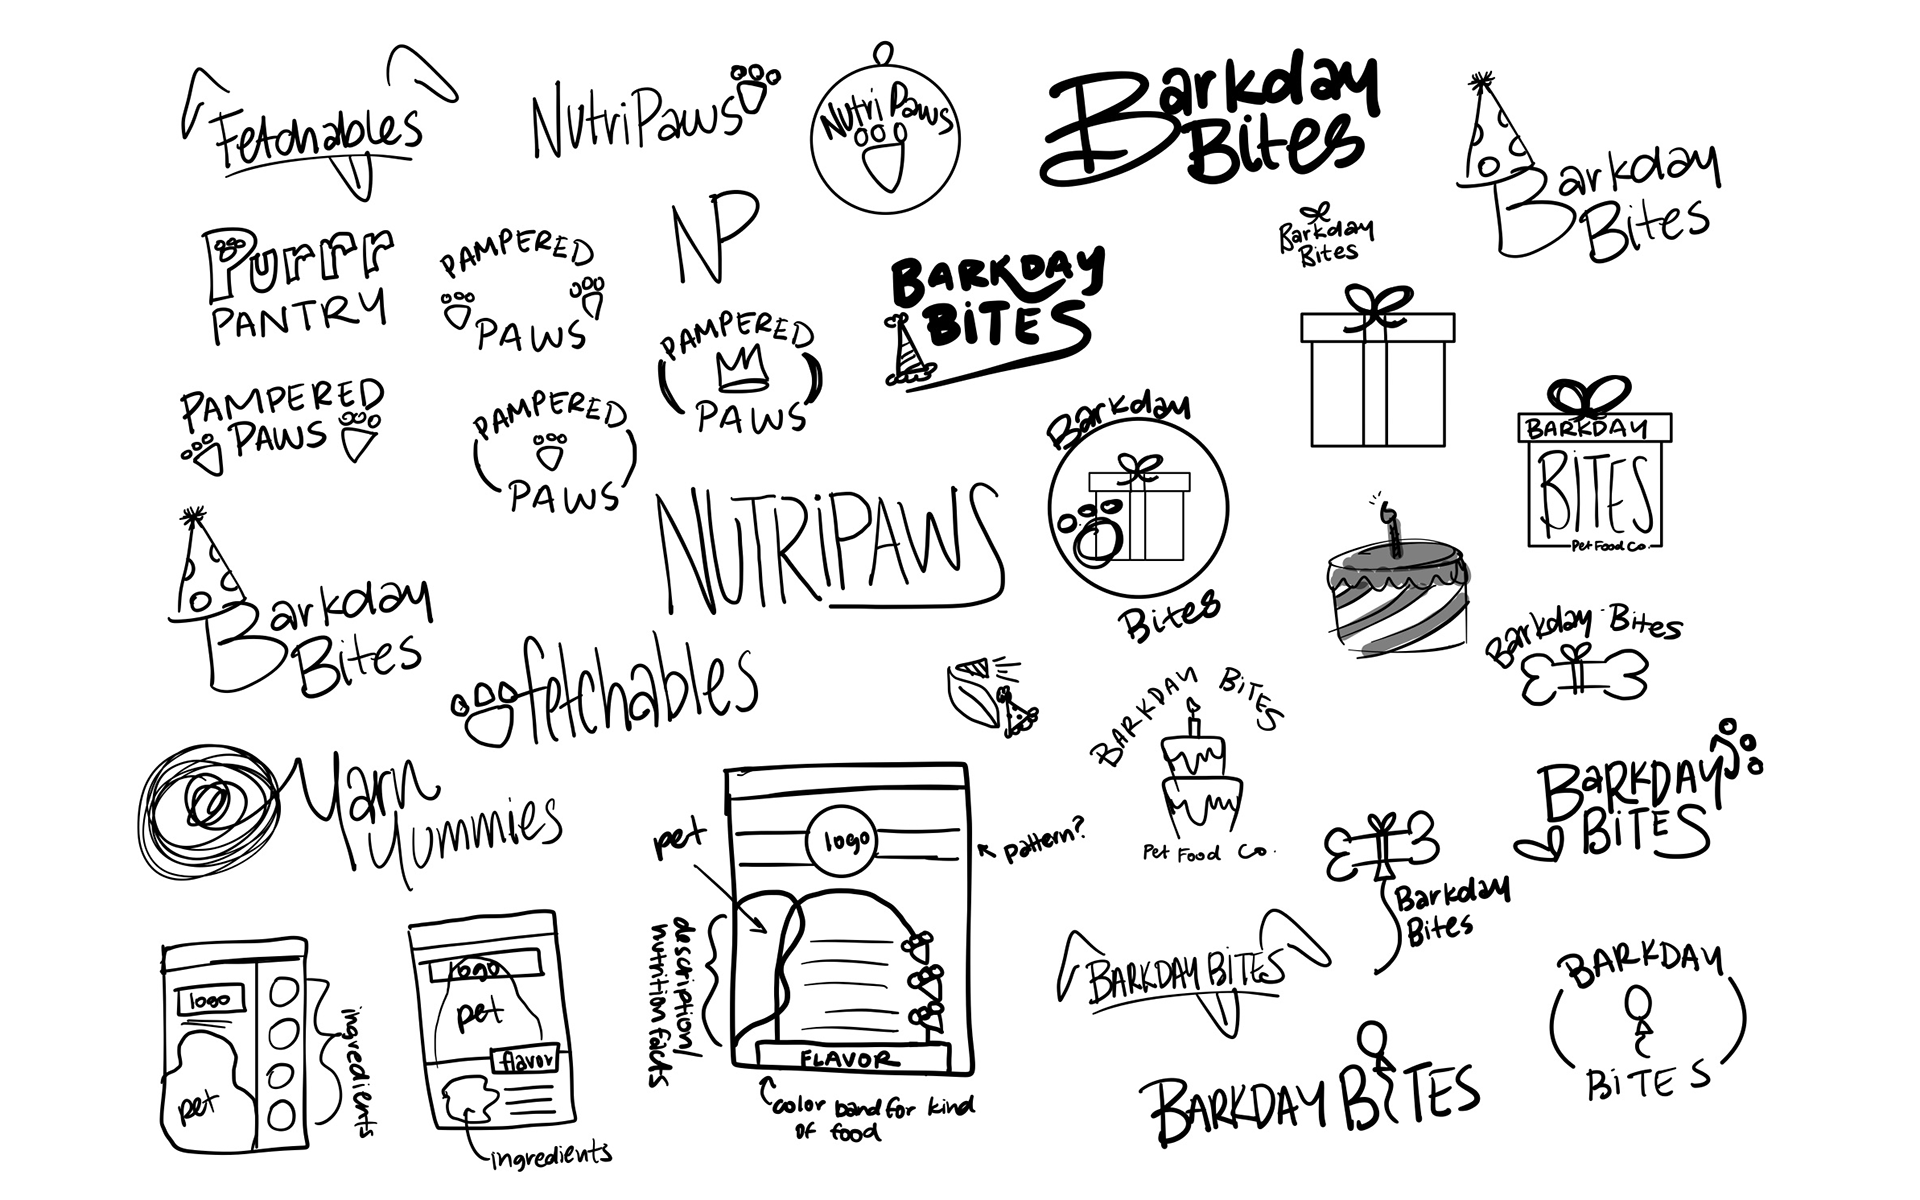 Fetchables
NutriPaws
Nutri Paws
Barkday
Bites
Barkday
Bites
Purrr
PANTRY
PAMPERED
PAWS
NP
Barkday
Bites
BARKDAY
BITES
PAMPERED
PAWS
PAMPERED
PAWS
PAMPERED
PAWS
Barkday
Bites
BARKDAY
BITES
Pet Food Co.
NUTRiPAWS
Barkday
Bites
fetchables
Barkday Bites
BARKDAY BITES
Pet Food Co.
Yarn
Yummies
BARKDAY
BITES
Barkday
Bites
pet
logo
pattern?
description/
nutrition facts
FLAVOR
color band for kind
of food
logo
pet
ingredients
logo
pet
flavor
ingredients
BARKDAY BITES
BARKDAY
BITES
BARKDAY BITES